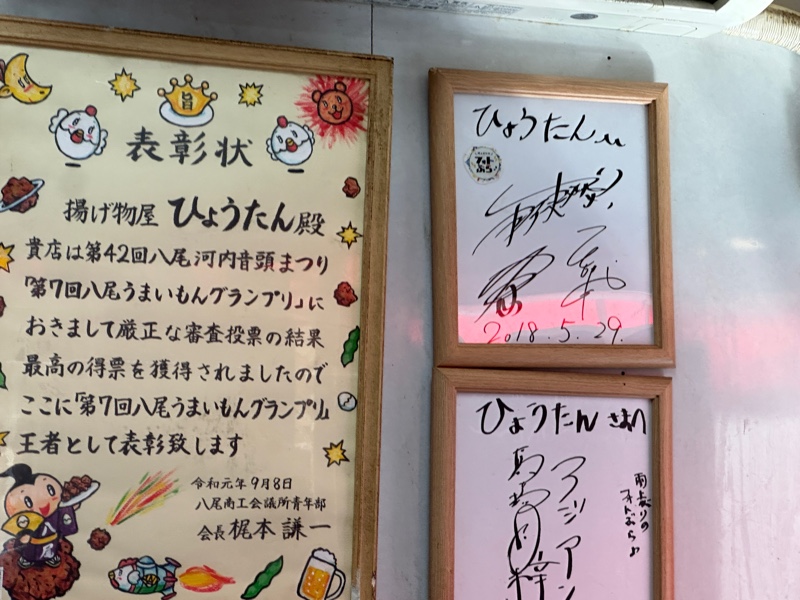 旨
表彰状
揚げ物屋 ひょうたん 殿
貴店は第42回八尾河内音頭まつり
「第7回八尾うまいもんグランプリ」に
おきまして厳正な審査投票の結果
最高の得票を獲得されましたので
ここに「第7回八尾うまいもんグランプリ」
王者として表彰致します
令和元年9月8日
八尾商工会議所青年部
会長 梶本謙一
ひょうたんさん
2018.5.29.
ひょうたん さん江
アジアン
馬場園梓